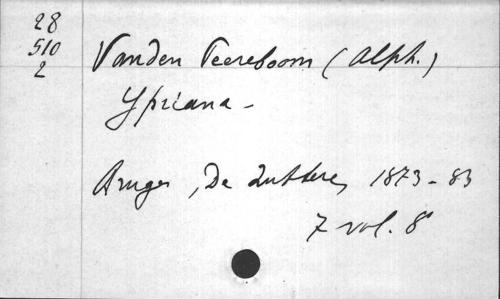 28
510
2
Vanden Peereboom (Alph.)
Ypriana -
Bruges, De Zuttere, 1873-83
7 vol. 8°